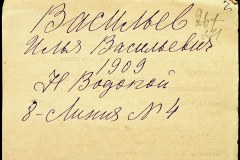 Васильев
Илья Васильевич
1909
Н Водопой
8-Линия № 4